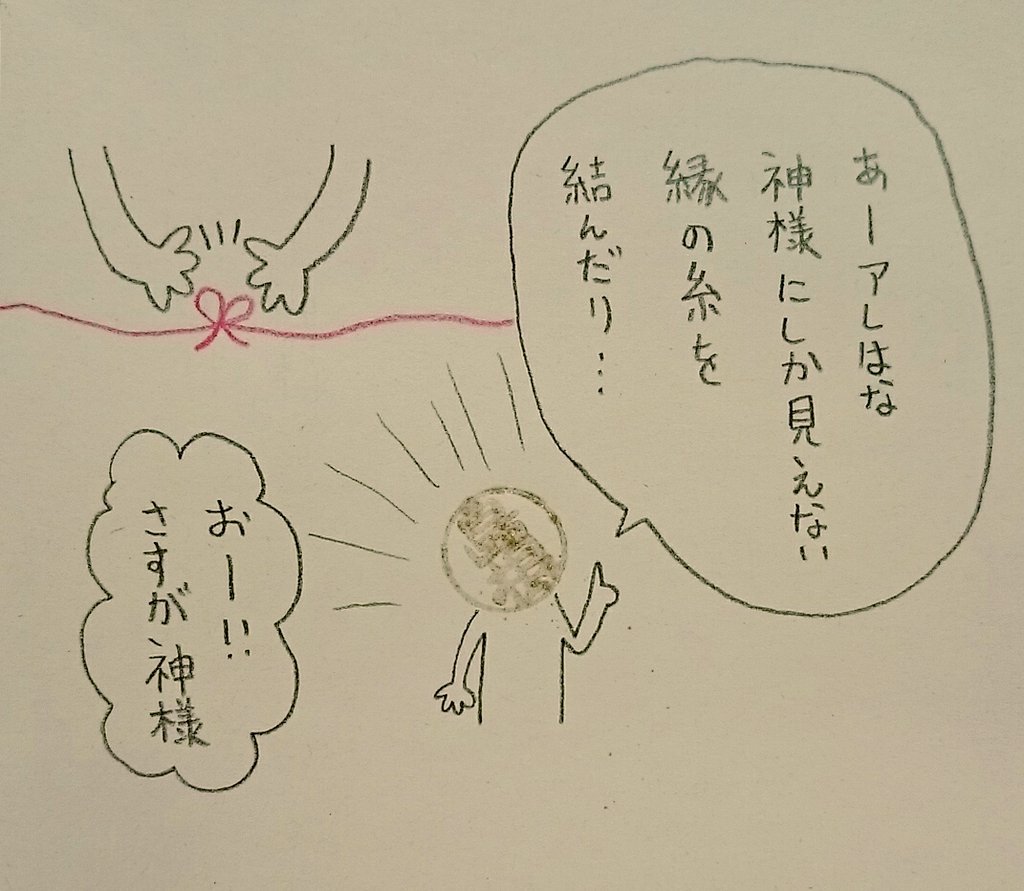 あーアレはな
神様にしか見えない
縁の糸を
結んだり…
おー!!
さすが神様